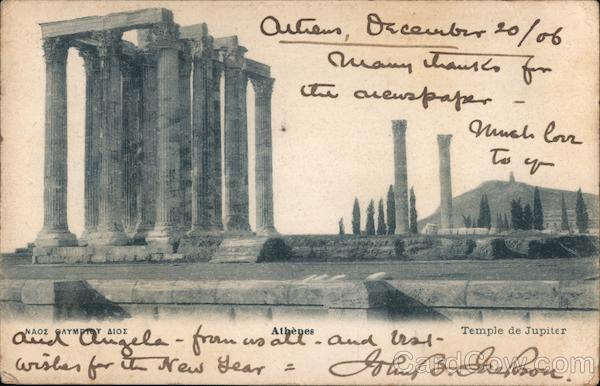 Athens, December 20/06
Many thanks for
the newspaper -
Much love
to you
ΝΑΟΣ ΟΛΥΜΠΙΟΥ ΔΙΟΣ
Athènes
Temple de Jupiter
and Angela - from us all - and best
wishes for the New Year =
John B.
CardCow.com